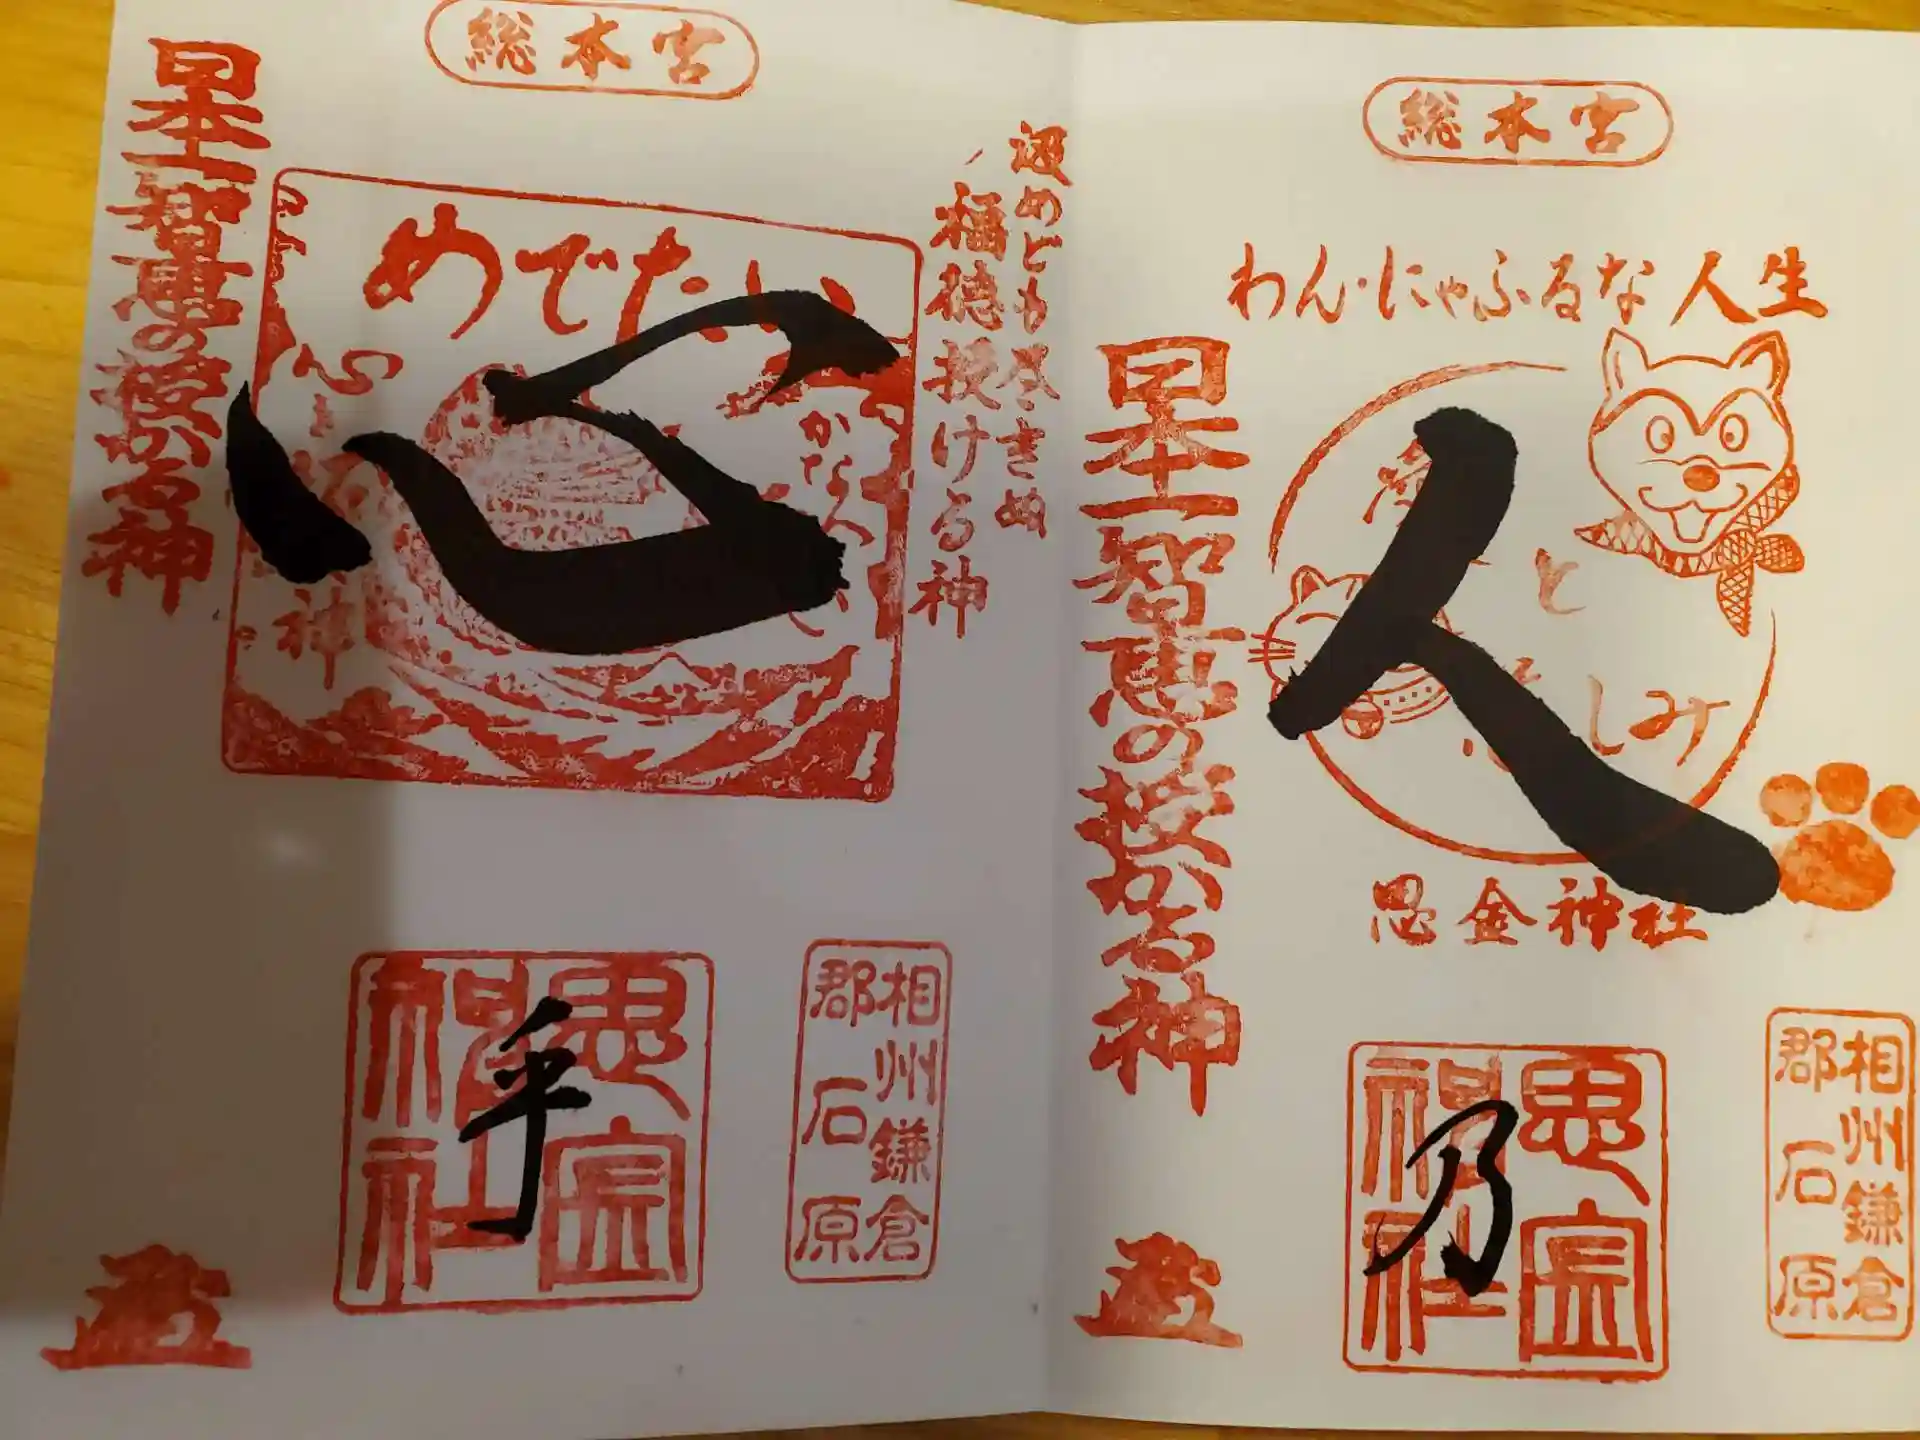 総本宮
わん・にゃふるな人生
人
と
しみ
思金神社
日本一智恵の授かる神
相州鎌倉
郡石原
思金
神社
乃
総本宮
汲めども尽きぬ
福徳授ける神
めでたい
心
かなえ
神
心
日本一智恵の授かる神
相州鎌倉
郡石原
思金
神社
乎